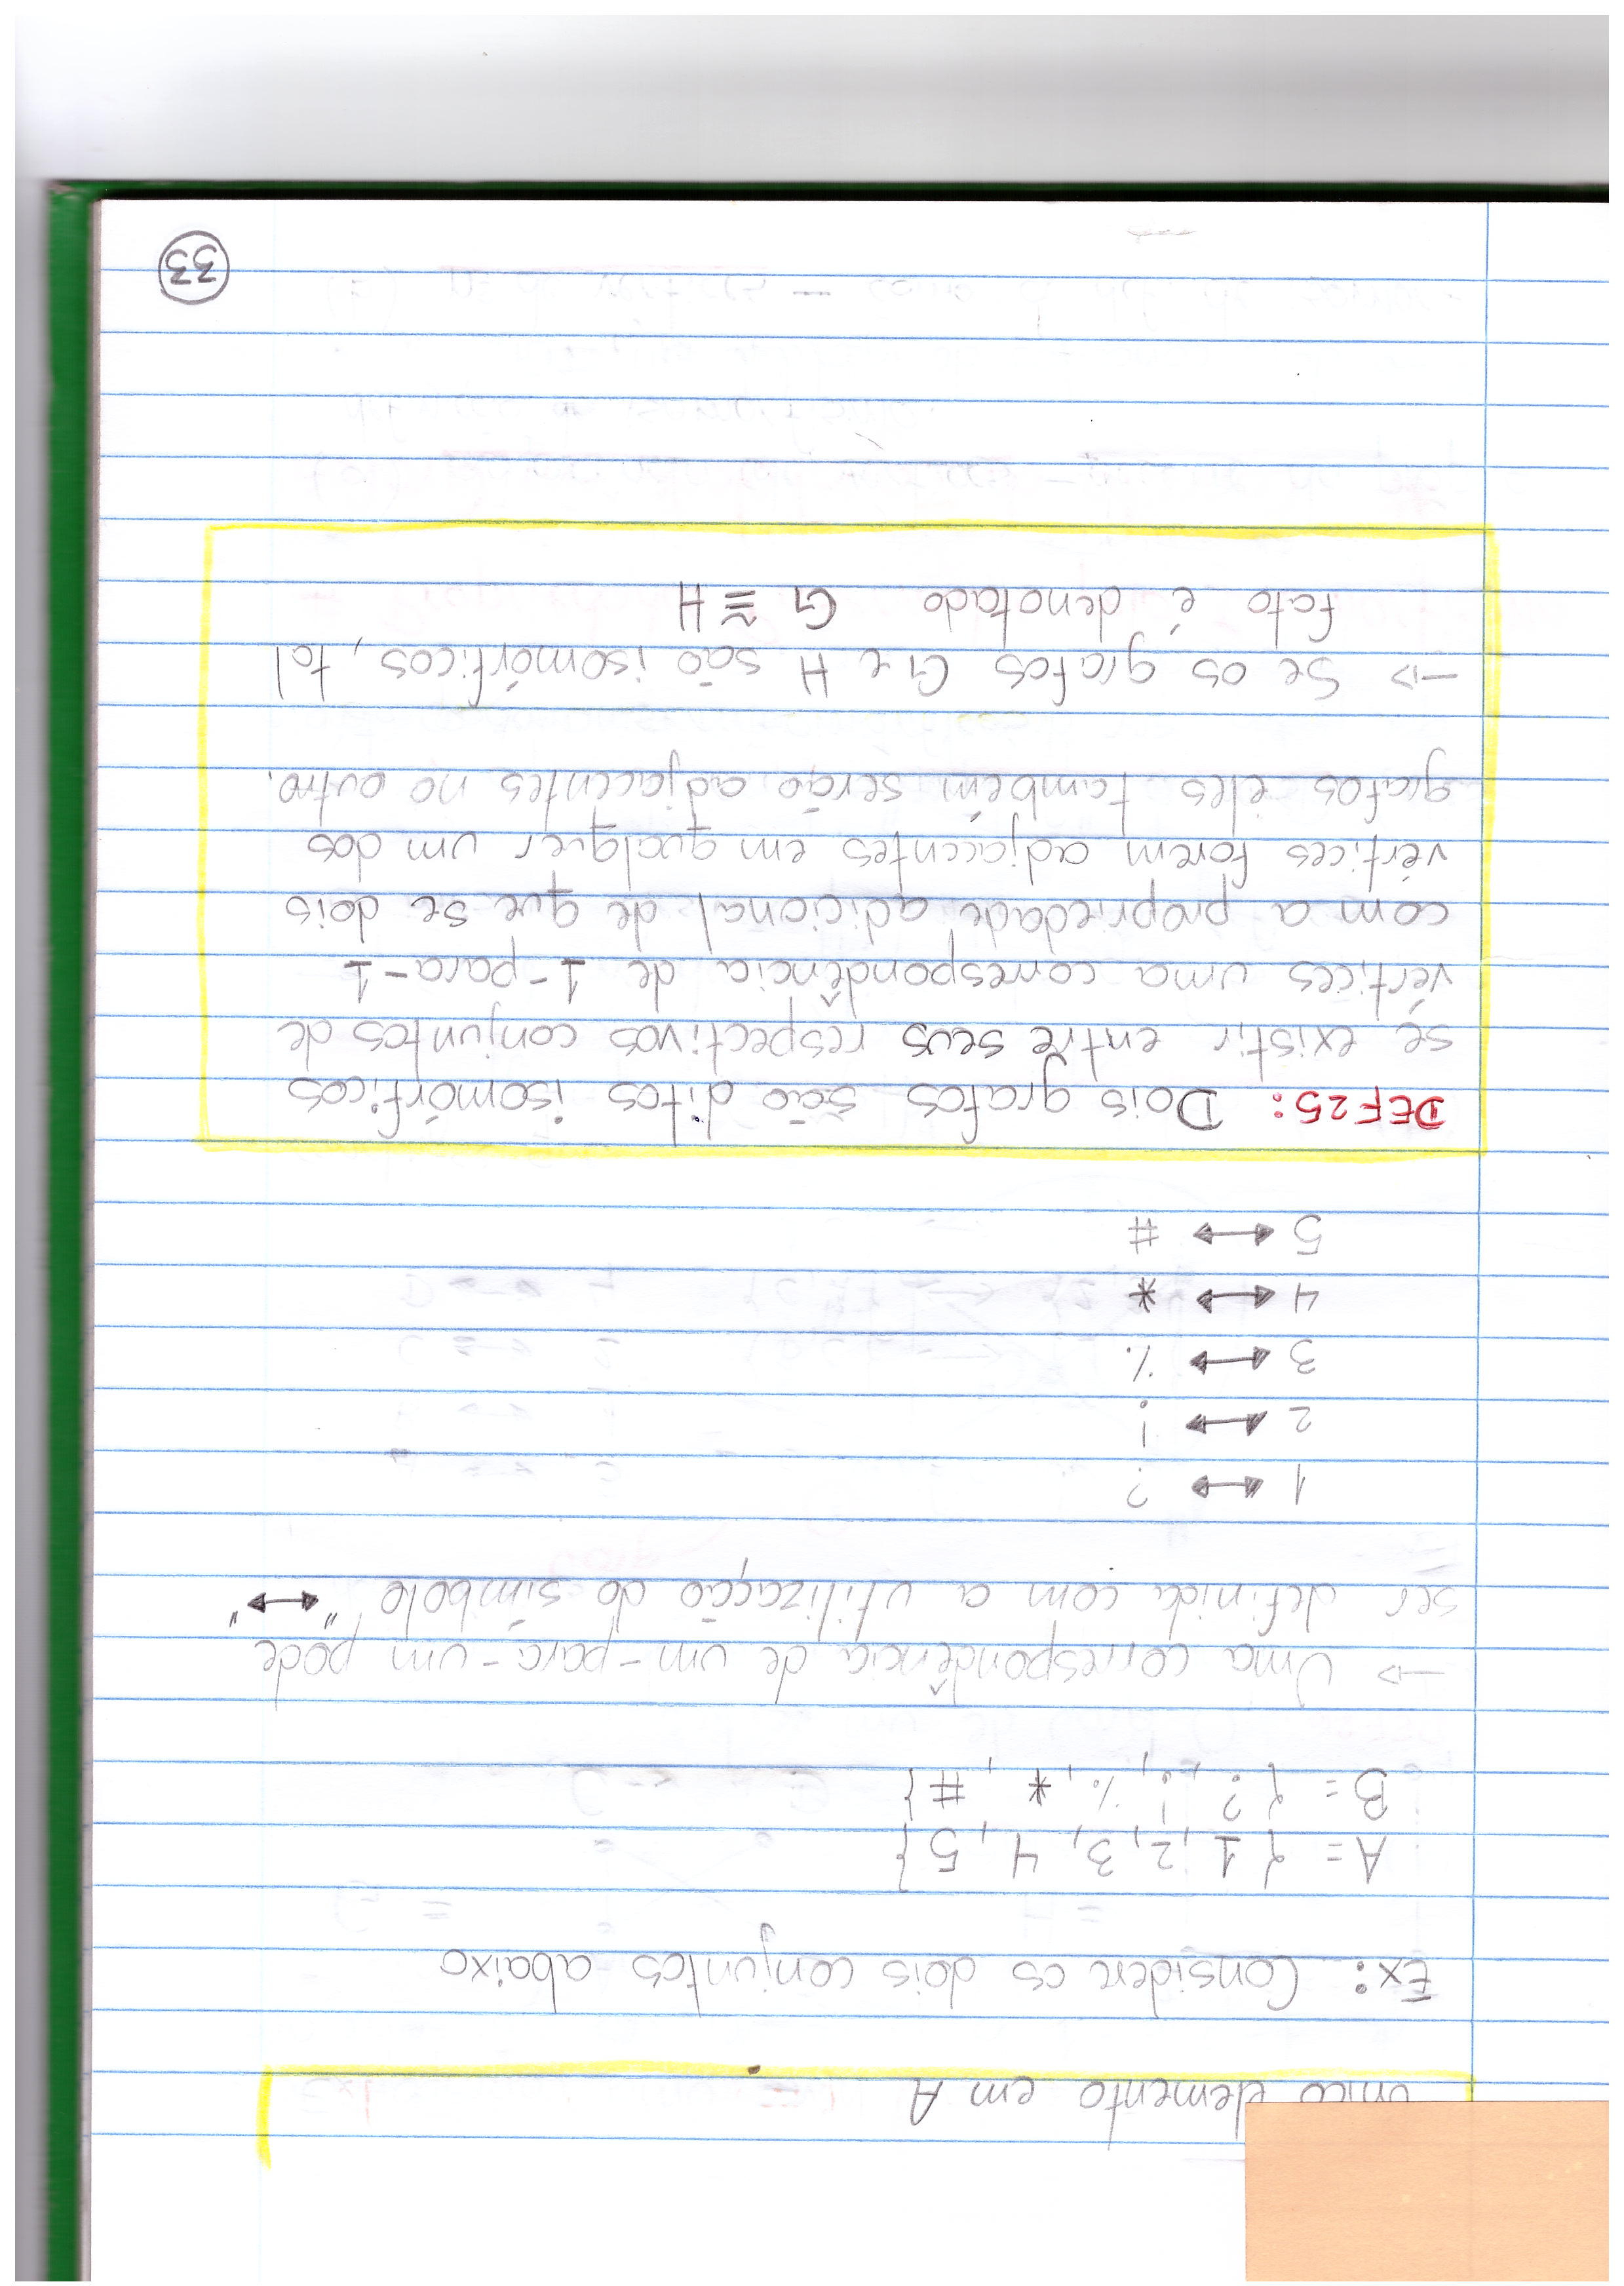 único elemento em A
Ex: Considere os dois conjuntos abaixo
A = { 1, 2, 3, 4, 5}
B = { ?, !, %, *, #}
→ Uma correspondência de um-para-um pode
ser definida com a utilização do símbolo "↔"
1 ↔ ?
2 ↔ !
3 ↔ %
4 ↔ *
5 ↔ #
DEF25: Dois grafos são ditos isomórficos
se existir entre seus respectivos conjuntos de
vértices uma correspondência de 1-para-1
com a propriedade adicional de que se dois
vértices forem adjacentes em qualquer um dos
grafos eles também serão adjacentes no outro.
→ Se os grafos G e H são isomórficos, tal
fato é denotado G ≅ H
33